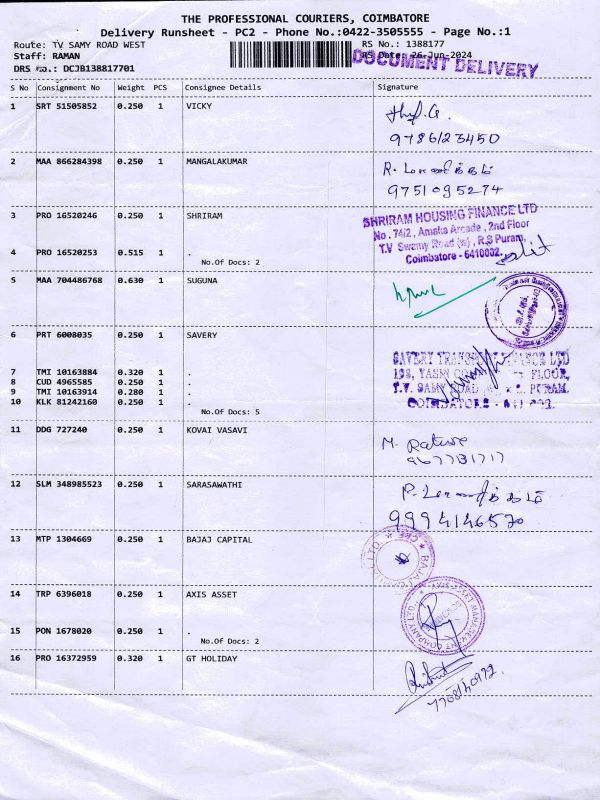 THE PROFESSIONAL COURIERS, COIMBATORE
Delivery Runsheet - PC2 - Phone No.:0422-3505555 - Page No.:1
Route: TV SAMY ROAD WEST RS No.: 1388177
Staff: RAMAN RS Date: 26-Jun-2024
DOCUMENT DELIVERY
DRS no.: DCJB138817701
S No Consignment No Weight PCS Consignee Details Signature
1 SRT 51505852 0.250 1 VICKY
9786123450
2 MAA 866284398 0.250 1 MANGALAKUMAR
9751095274
3 PRO 16520246 0.250 1 SHRIRAM
SHRIRAM HOUSING FINANCE LTD
No. 74/2, Amaka Arcade, 2nd Floor
T.V Swamy Road (w), R.S Puram,
Coimbatore - 6410002.
4 PRO 16520253 0.515 1 .
No.Of Docs: 2
5 MAA 704486768 0.630 1 SUGUNA
6 PRT 6008035 0.250 1 SAVERY
SAVERY LTD
FLOOR,
T.V. SAMY ROAD PURAM.
7 TMI 10163884 0.320 1 .
8 CUD 4965585 0.250 1 .
9 TMI 10163914 0.280 1 .
10 KLK 81242160 0.250 1 .
No.Of Docs: 5
11 DDG 727240 0.250 1 KOVAI VASAVI
9677731717
12 SLM 348985523 0.250 1 SARASAWATHI
9994146570
13 MTP 1304669 0.250 1 BAJAJ CAPITAL
14 TRP 6396018 0.250 1 AXIS ASSET
15 PON 1678020 0.250 1 .
No.Of Docs: 2
16 PRO 16372959 0.320 1 GT HOLIDAY